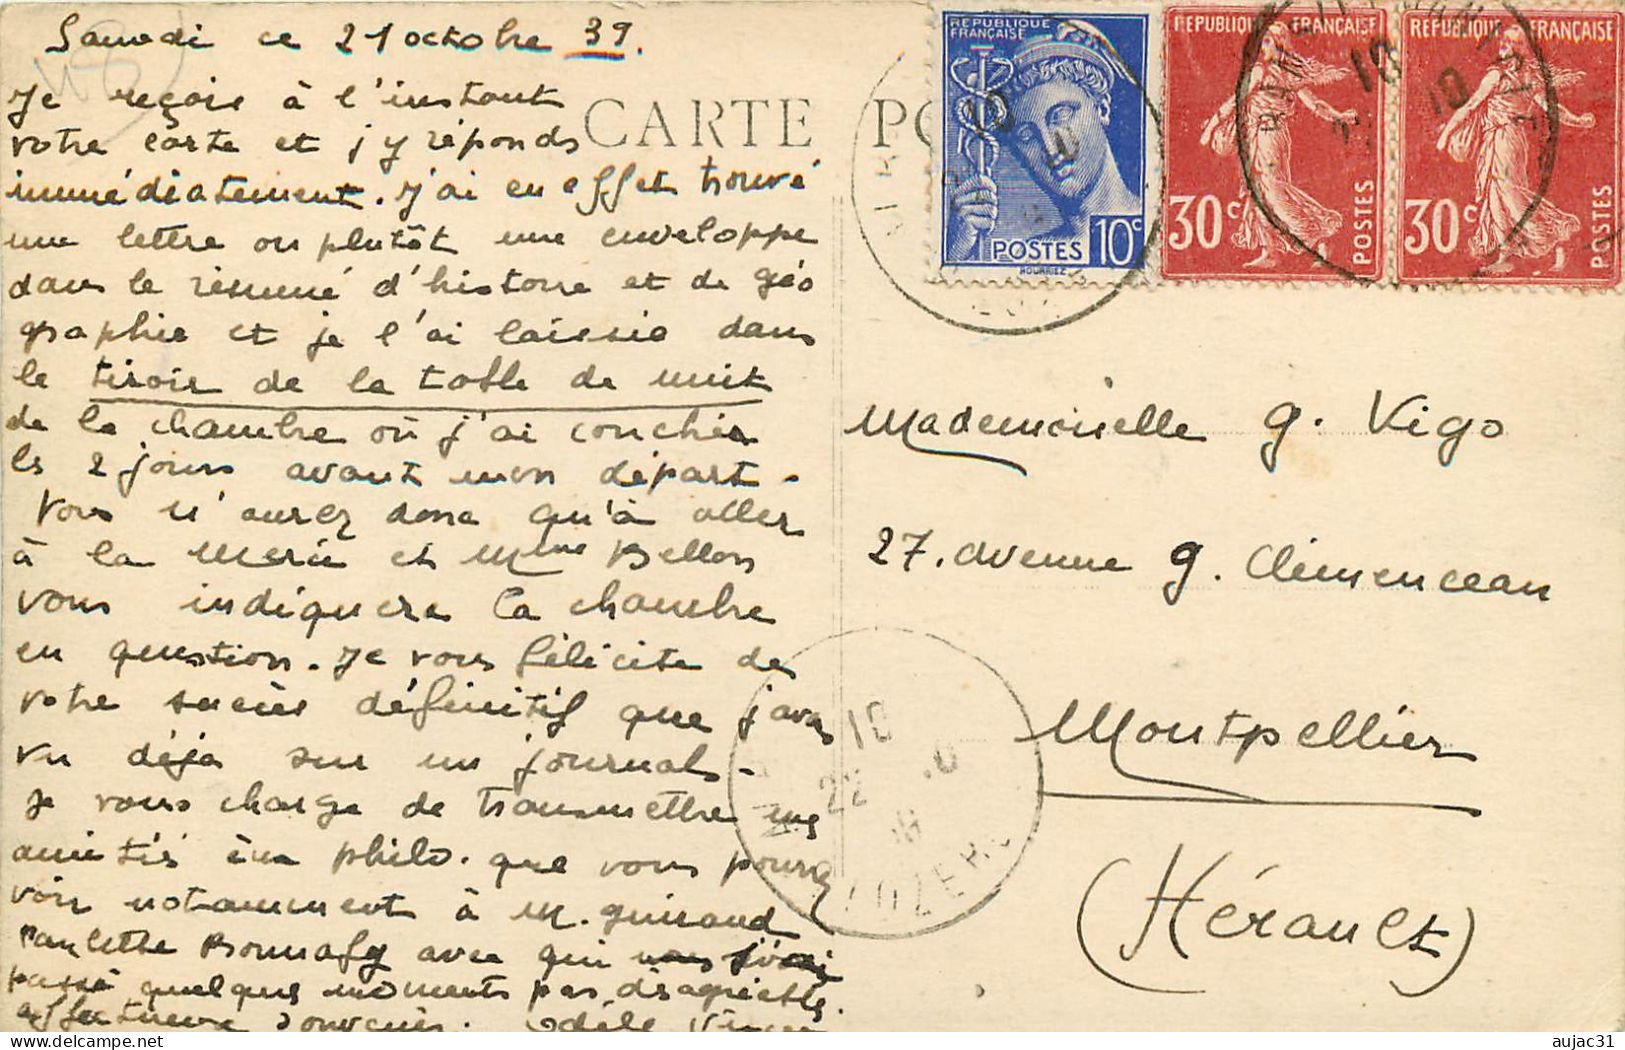 Samedi ce 21 octobre 39.
Je reçois à l'instant
votre carte et j'y réponds
immédiatement. J'ai en effet trouvé
une lettre ou plutôt une enveloppe
dans le résumé d'histoire et de géo
graphie et je l'ai laissée dans
le tiroir de la table de nuit
de la chambre où j'ai couchée
les 2 jours avant mon départ.
Vous n'aurez donc qu'à aller
à la Merci et Mme Bellon
vous indiquera la chambre
en question. Je vous félicite de
votre succès définitif que j'avais
vu déjà sur un journal.
Je vous charge de transmettre mes
amitiés philo. que vous pourrez
voir notamment à M. Guiraud
Paulette Bonnafy avec qui j'ai
passé quelques moments pas désagréables.
affectueux souvenirs. Adèle
CARTE PO
REPUBLIQUE
FRANÇAISE
POSTES 10c
REPUBLIQUE FRANÇAISE
30c POSTES
REPUBLIQUE FRANÇAISE
30c POSTES
Mademoiselle G. Vigo
27. avenue G. Clémenceau
Montpellier
(Hérault)
10
22
LOZERE
aujac31